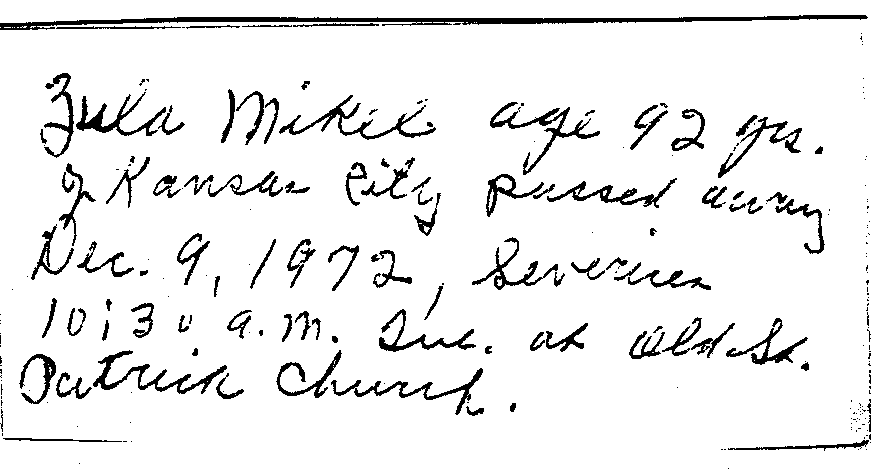 Zula Mikel age 92 yrs.
of Kansas City passed away
Dec. 9, 1972, Severices
10:30 a.m. Tue. at Old St.
Patrick Church.